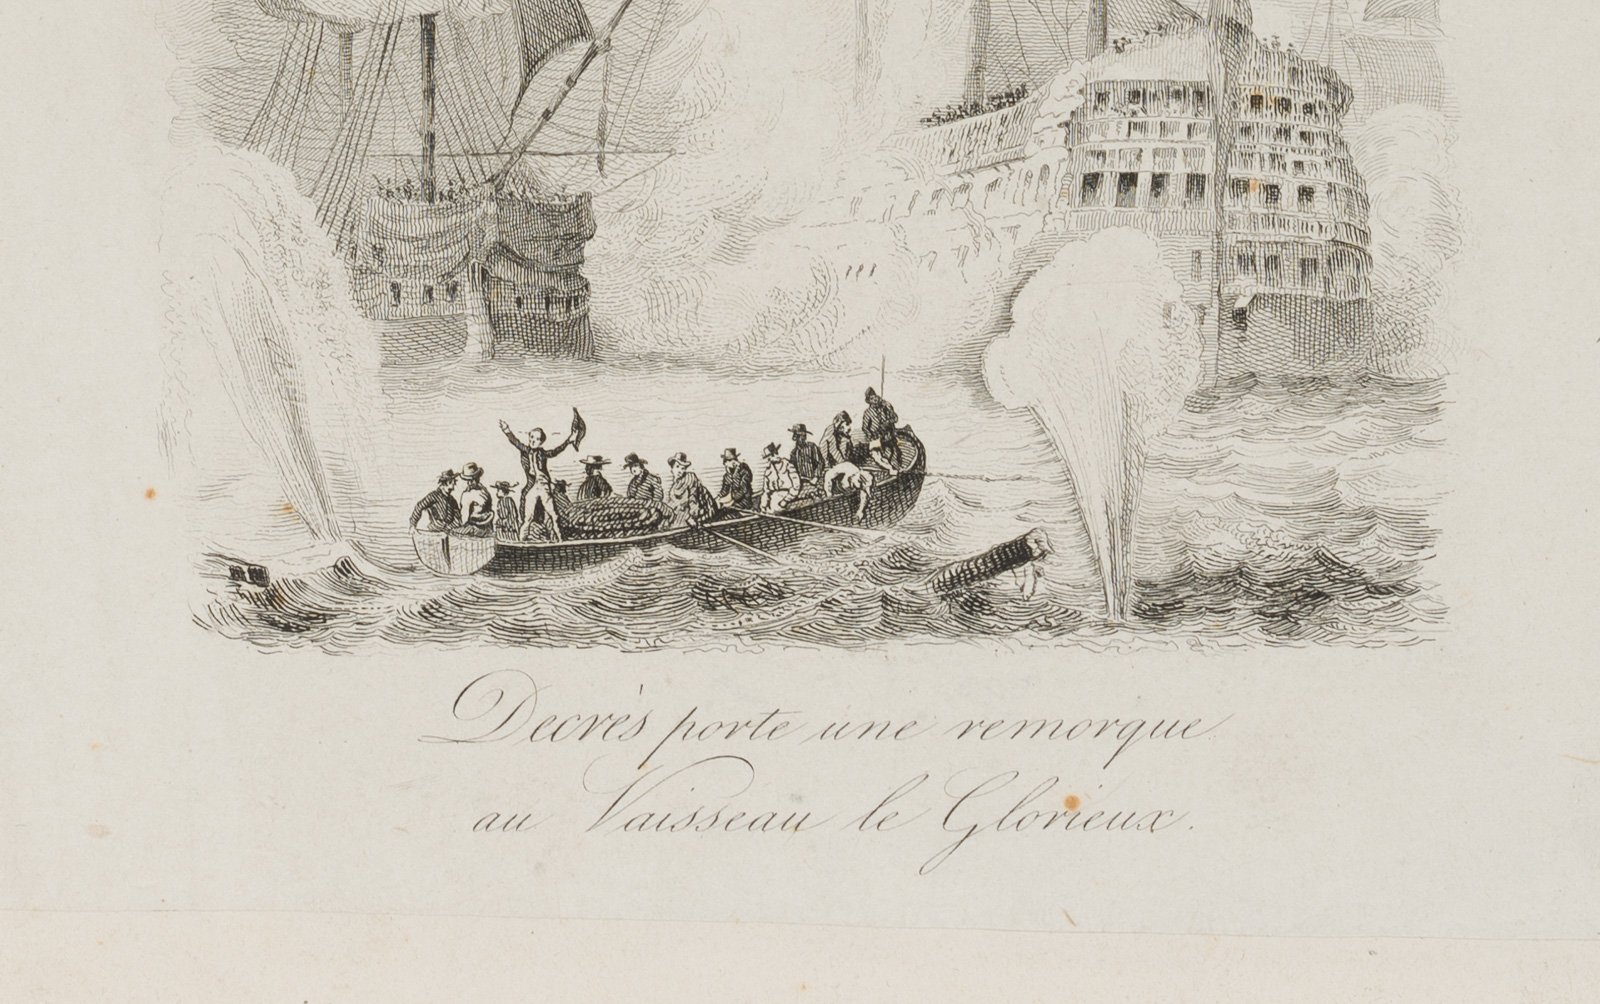 Decrès porte une remorque
au Vaisseau le Glorieux.